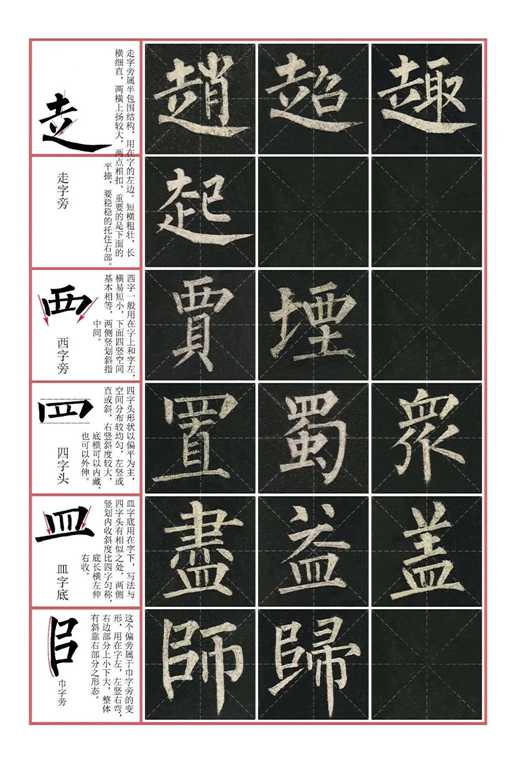 走字旁属半包围结构，用在字的左边，短横粗壮，长
横细直，两横上扬较大，两点相扣，重要的是下面的
平捺，要稳稳的托住右部。
走字旁
趙 超 趣
起
西字一般用在字上和字左，
横易短小，下面四竖空间
基本相等，两侧竖划斜指
中间。
覀
西字旁
賈 堙
四字头形状以偏平为主，
空间分布较均匀，左竖或
直或斜，右竖斜度较大，
底横可以内藏，
也可以外伸。
罒
四字头
置 蜀 眾
皿字底用在字下，写法与
四字头有相似之处，两侧
竖划内收斜度比四字匀称，
底长横左伸
右收。
皿
皿字底
盡 益 盖
这个偏旁属于巾字旁的变
形，用在字左，左竖右弯，
右边部分上小下大，整体
有斜靠右部分之形态。
巾字旁
師 歸